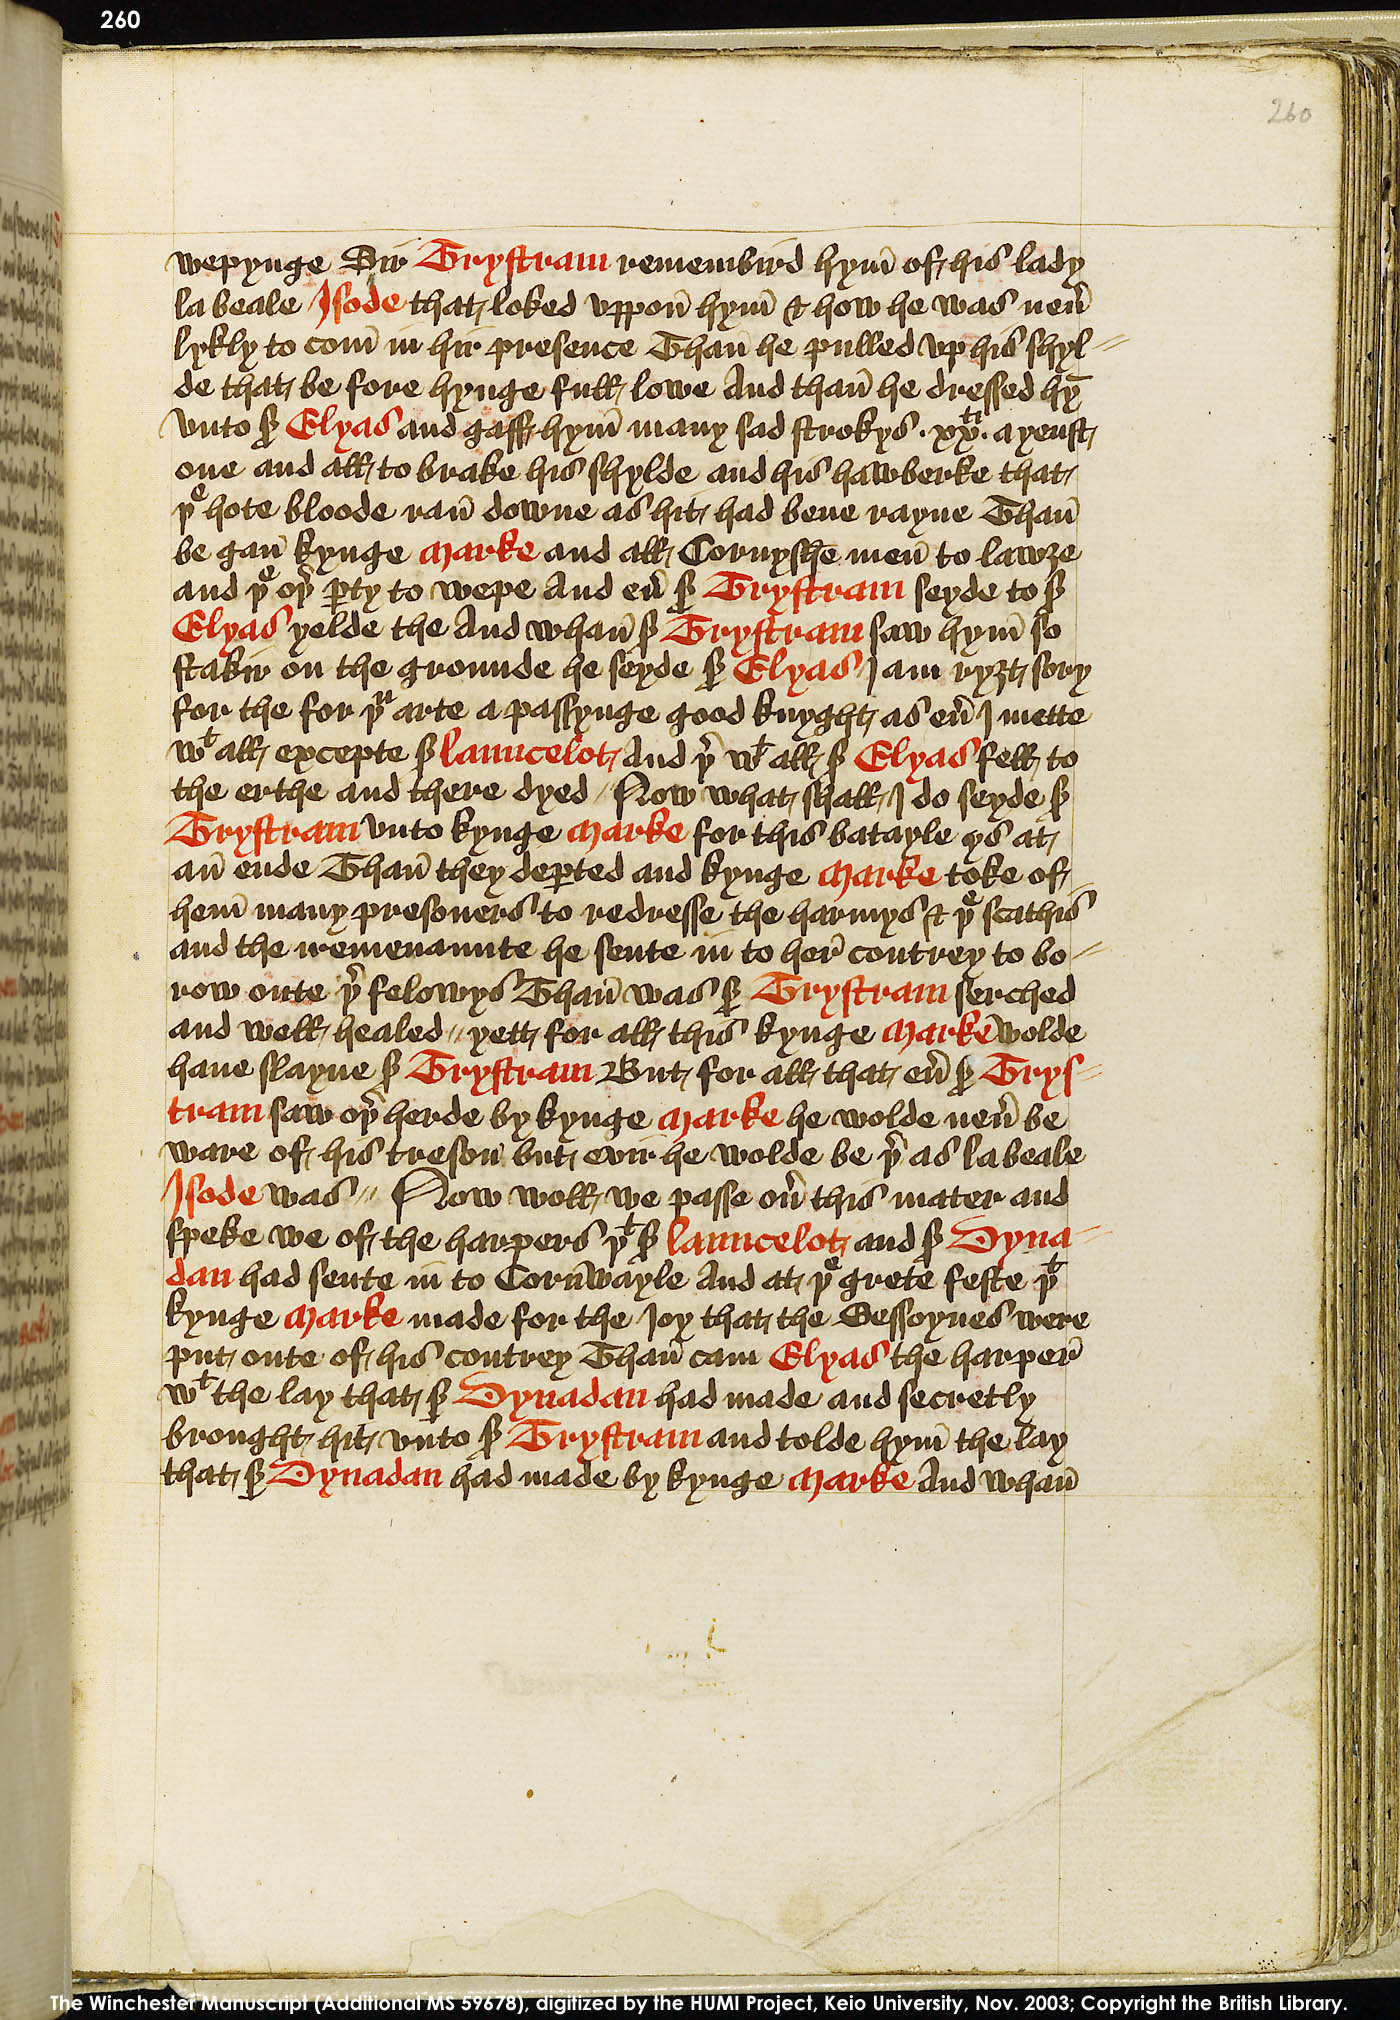 260
260
wepynge Sir Trystram remembird hym̄ of his lady
la beale Isode that loked vppon̄ hym̄ & how he was neu̾
lykly to com̄ in hir presence Than̄ he pulled vp his shyl-
de that be fore hynge full lowe And than̄ he dressed hy̅
vnto s̾ Elyas and gaff hym̄ many sad strokys . xxᵗⁱ . ayenst
one and all to brake his shylde and his hawberke that
þᵉ hote bloode ran̄ downe as hit had bene rayne Than̄
be gan̄ kynge Marke and all Cornyshe men̄ to lawȝe
and þᵉ oþ̾ ꝑty to wepe And eu̾ s̾ Trystram seyde to s̾
Elyas yelde the And whan̄ s̾ Trystram saw hym̄ so
stakir on the grounde he seyde s̾ Elyas I am ryȝt sory
for the for þᵘ arte a passynge good knyght as eu̾ I mette
wᵗ all excepte s̾ launcelot And þ̾ wᵗ all s̾ Elyas fell to
the erthe and there dyed // Now what shall I do seyde s̾
Trystram vnto kynge Marke for this batayle ys at
an̄ ende Than̄ they deꝑted and kynge Marke toke of
hem̄ many presoners to redresse the harmys & þᵉ scathis
and the remenaunte he sente in to her̄ contrey to bo-
row oute þ̾ felowys Than̄ was s̾ Trystram serched
and well healed // yett for all this kynge Marke wolde
haue slayne s̾ Trystram But for all that eu̾ s̾ Trys-
tram saw oþ̾ herde by kynge Marke he wolde neu̾ be
ware of his treson but evir he wolde be þ̾ as la beale
Isode was // Now woll we passe ou̾ this mater and
speke we of the harpers þᵗ s̾ launcelot and s̾ Dyna-
dan had sente in to Corn̄wayle And at þᵉ grete feste þᵗ
kynge Marke made for the Ioy that the Sessoynes were
put oute of his contrey Than̄ cam Elyas the harper̄
wᵗ the lay that s̾ Dynadan had made and secretly
brought hit vnto s̾ Trystram and tolde hym̄ the lay
that s̾ Dynadan had made by kynge Marke And whan̄
The Winchester Manuscript (Additional MS 59678), digitized by the HUMI Project, Keio University, Nov. 2003; Copyright the British Library.